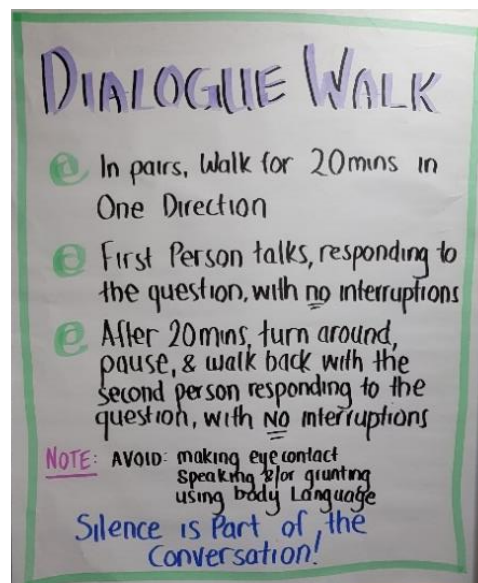 DIALOGUE WALK
In pairs, Walk for 20mins in
One Direction
First Person talks, responding to
the question, with no interruptions
After 20mins, turn around,
pause, & walk back with the
second person responding to the
question, with NO interruptions
NOTE: AVOID: making eye contact
speaking &/or grunting
using body Language
Silence is Part of the
Conversation!